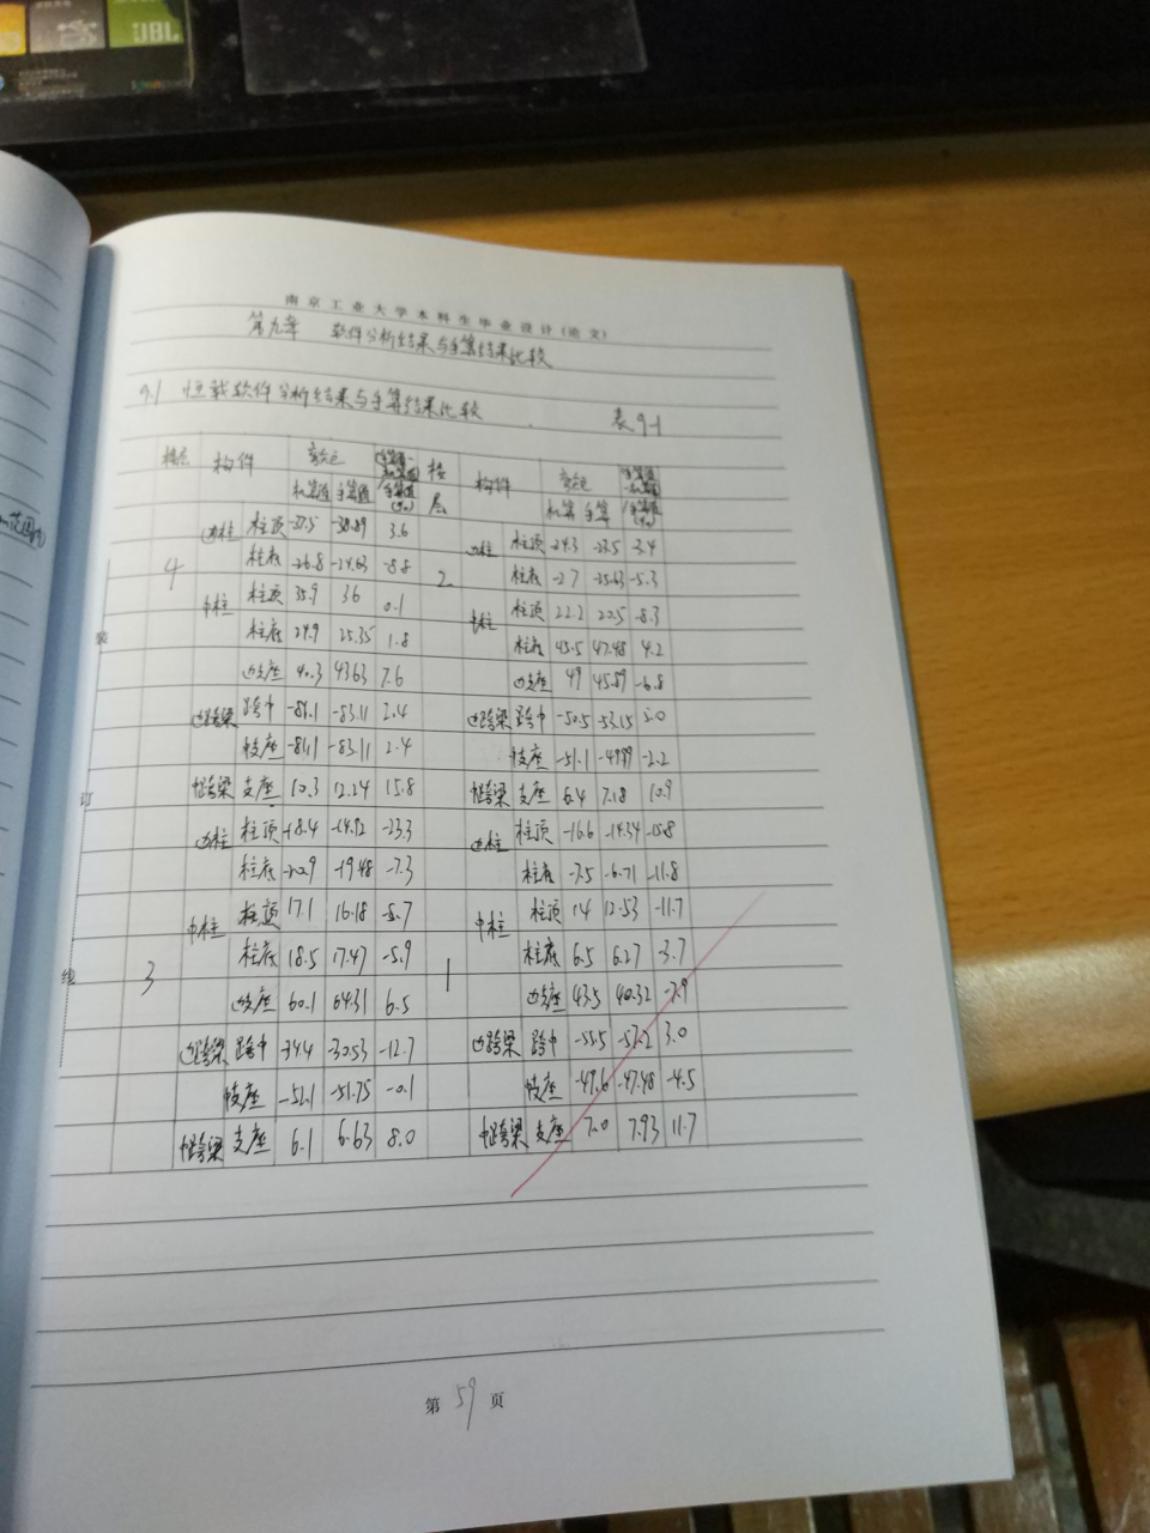 JBL
南京工业大学本科生毕业设计(论文)
第九章 软件分析结果与手算结果比较
9.1 恒载软件分析结果与手算结果比较 表9-1
楼层 构件 弯矩 (手算值-机算值)/手算值(%) 楼层 构件 弯矩 (手算值-机算值)/手算值(%)
机算值 手算值 机算 手算
边柱 柱顶 -37.5 -38.89 3.6 边柱 柱顶 -24.3 -23.5 -3.4
4 柱底 -26.8 -24.63 -8.8 2 柱底 -27 -25.63 -5.3
中柱 柱顶 35.9 36 0.1 中柱 柱顶 22.2 20.5 -8.3
柱底 24.9 25.35 1.8 柱底 45.5 47.48 4.2
边支座 40.3 43.63 7.6 边支座 49 45.89 -6.8
边跨梁 跨中 -81.1 -83.11 2.4 边跨梁 跨中 -50.5 -53.15 5.0
中支座 -81.1 -83.11 2.4 中支座 -51.1 -49.99 -2.2
中跨梁 支座 10.3 12.24 15.8 中跨梁 支座 6.4 7.18 10.9
边柱 柱顶 -18.4 -14.92 -23.3 边柱 柱顶 -16.6 -14.34 -15.8
柱底 -20.9 -19.48 -7.3 柱底 -7.5 -6.71 -11.8
中柱 柱顶 17.1 16.18 -5.7 中柱 柱顶 14 12.53 -11.7
3 柱底 18.5 17.47 -5.9 1 柱底 6.5 6.27 -3.7
边支座 60.1 64.31 6.5 边支座 43.5 40.32 -7.9
边跨梁 跨中 -34.4 -30.53 -12.7 边跨梁 跨中 -55.5 3.0
中支座 -51.75 -0.1 中支座 -49.6 -47.48 -4.5
中跨梁 支座 6.1 6.63 8.0 中跨梁 支座 7.0 7.93 11.7
装
订
线
第 59 页